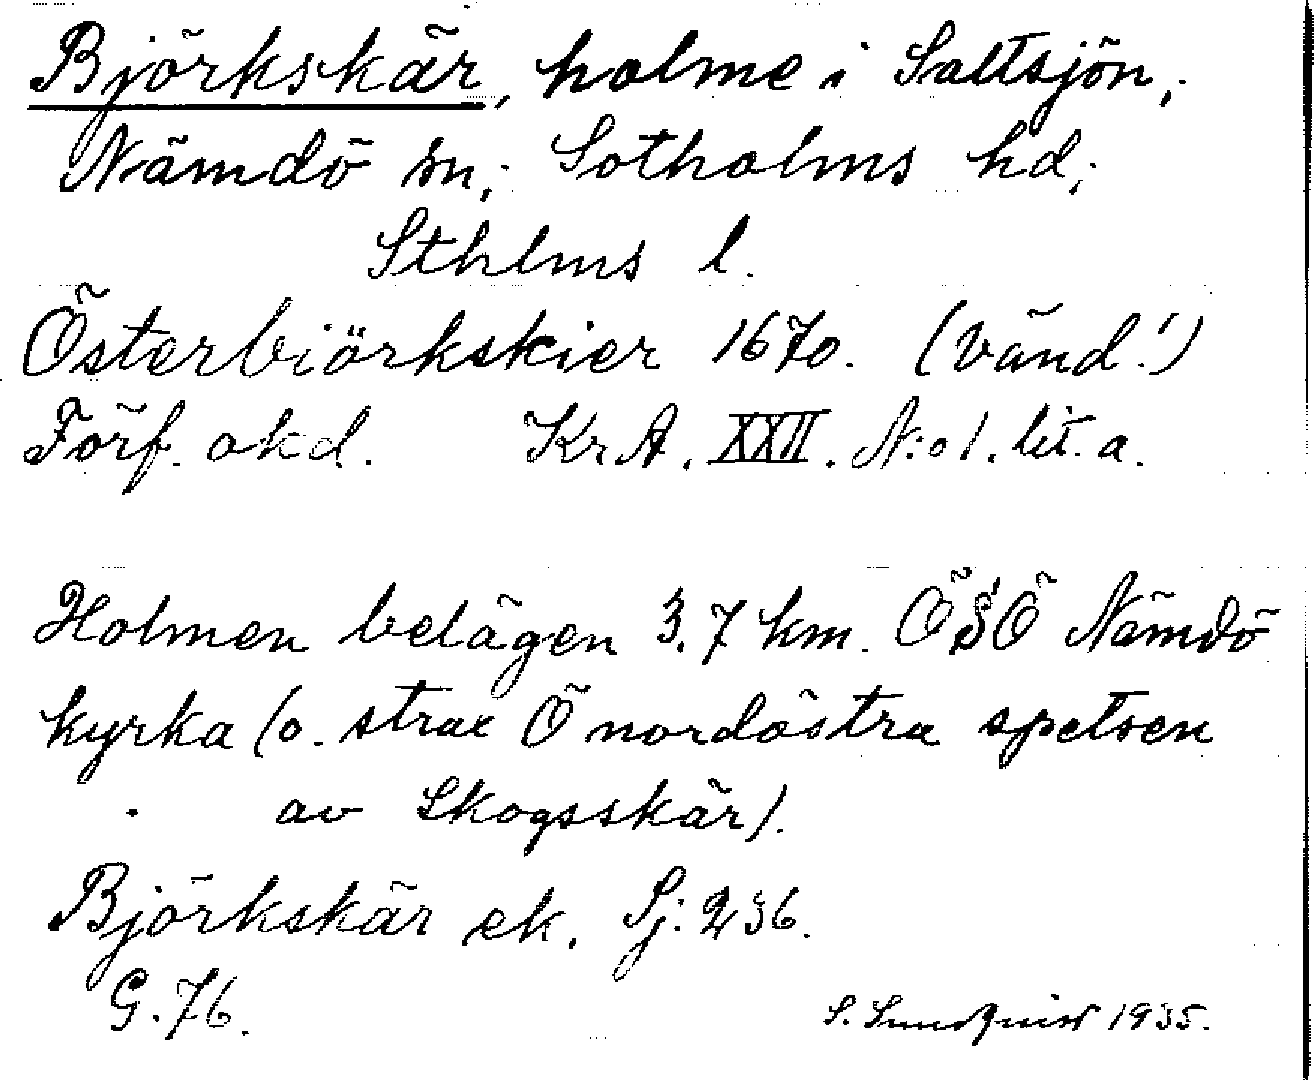 Björkskär, holme i Saltsjön,
Nämdö sn, Sotholms hd,
Sthlms l.
Österbiörkskier 1670. (vänd!)
Förf. okd. KrA. XXII. N:o 1. lit. a.
Holmen belägen 3.7 km. ÖSÖ Nämdö
kyrka (o. strax Ö nordöstra spetsen
av Skogsskär).
Björkskär ek. Sj: 236.
G. 76.
S. Sundquist 1935.